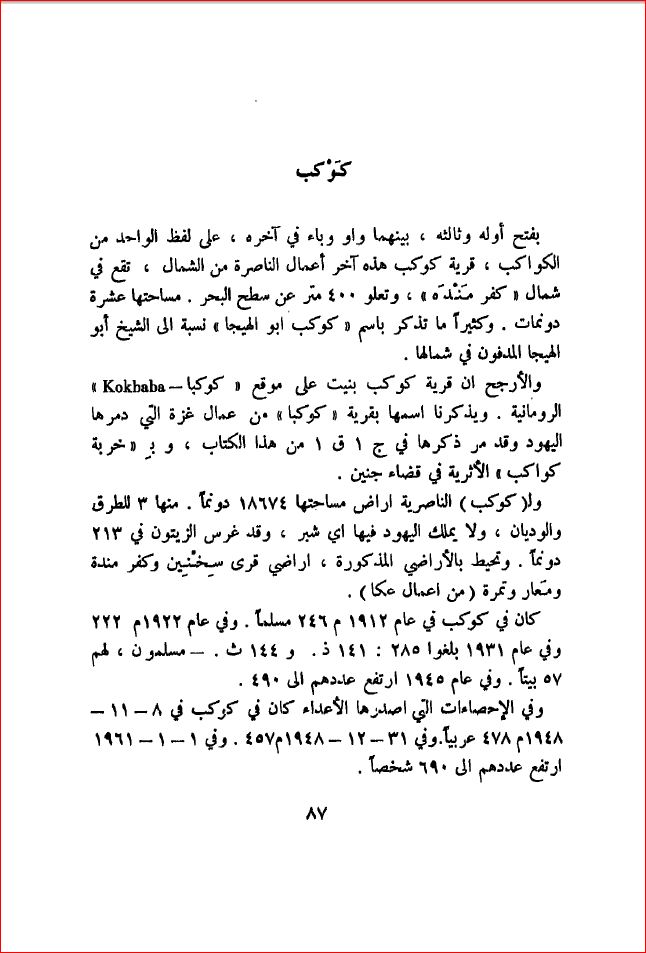 كَوْكب
بفتح أوله وثالثه ، بينهما واو وباء في آخره ، على لفظ الواحد من
الكواكب ، قرية كوكب هذه آخر أعمال الناصرة من الشمال ، تقع في
شمال « كفر مَنْدَه » ، وتعلو ٤٠٠ متر عن سطح البحر . مساحتها عشرة
دونمات . وكثيراً ما تذكر باسم « كوكب ابو الهيجا » نسبة الى الشيخ أبو
الهيجا المدفون في شمالها .
والأرجح ان قرية كوكب بنيت على موقع « كوكبا – Kokbaba »
الرومانية . ويذكرنا اسمها بقرية « كوكبا » من عمال غزة التي دمرها
اليهود وقد مر ذكرها في ج ١ ق ١ من هذا الكتاب ، و بـِ « خربة
كواكب » الأثرية في قضاء جنين .
ولـ( كوكب ) الناصرية اراض مساحتها ١٨٦٧٤ دونماً . منها ٣ للطرق
والوديان ، ولا يملك اليهود فيها اي شبر ، وقد غرس الزيتون في ٢١٣
دونماً . وتحيط بالأراضي المذكورة ، اراضي قرى سِخْنْيِن وكفر مندة
ومَعار وتمرة ( من اعمال عكا ) .
كان في كوكب في عام ١٩١٢ م ٢٤٦ مسلماً . وفي عام ١٩٢٢م ٢٢٢
وفي عام ١٩٣١ بلغوا ٢٨٥ : ١٤١ ذ . و ١٤٤ ث . – مسلمون ، لهم
٥٧ بيتاً . وفي عام ١٩٤٥ ارتفع عددهم الى ٤٩٠ .
وفي الإحصاءات التي اصدرها الأعداء كان في كركب في ٨ – ١١ –
١٩٤٨م ٤٧٨ عربياً.وفي ٣١ – ١٢ – ١٩٤٨م٤٥٧ . وفي ١ – ١ – ١٩٦١
ارتفع عددهم الى ٦٩٠ شخصاً .
٨٧